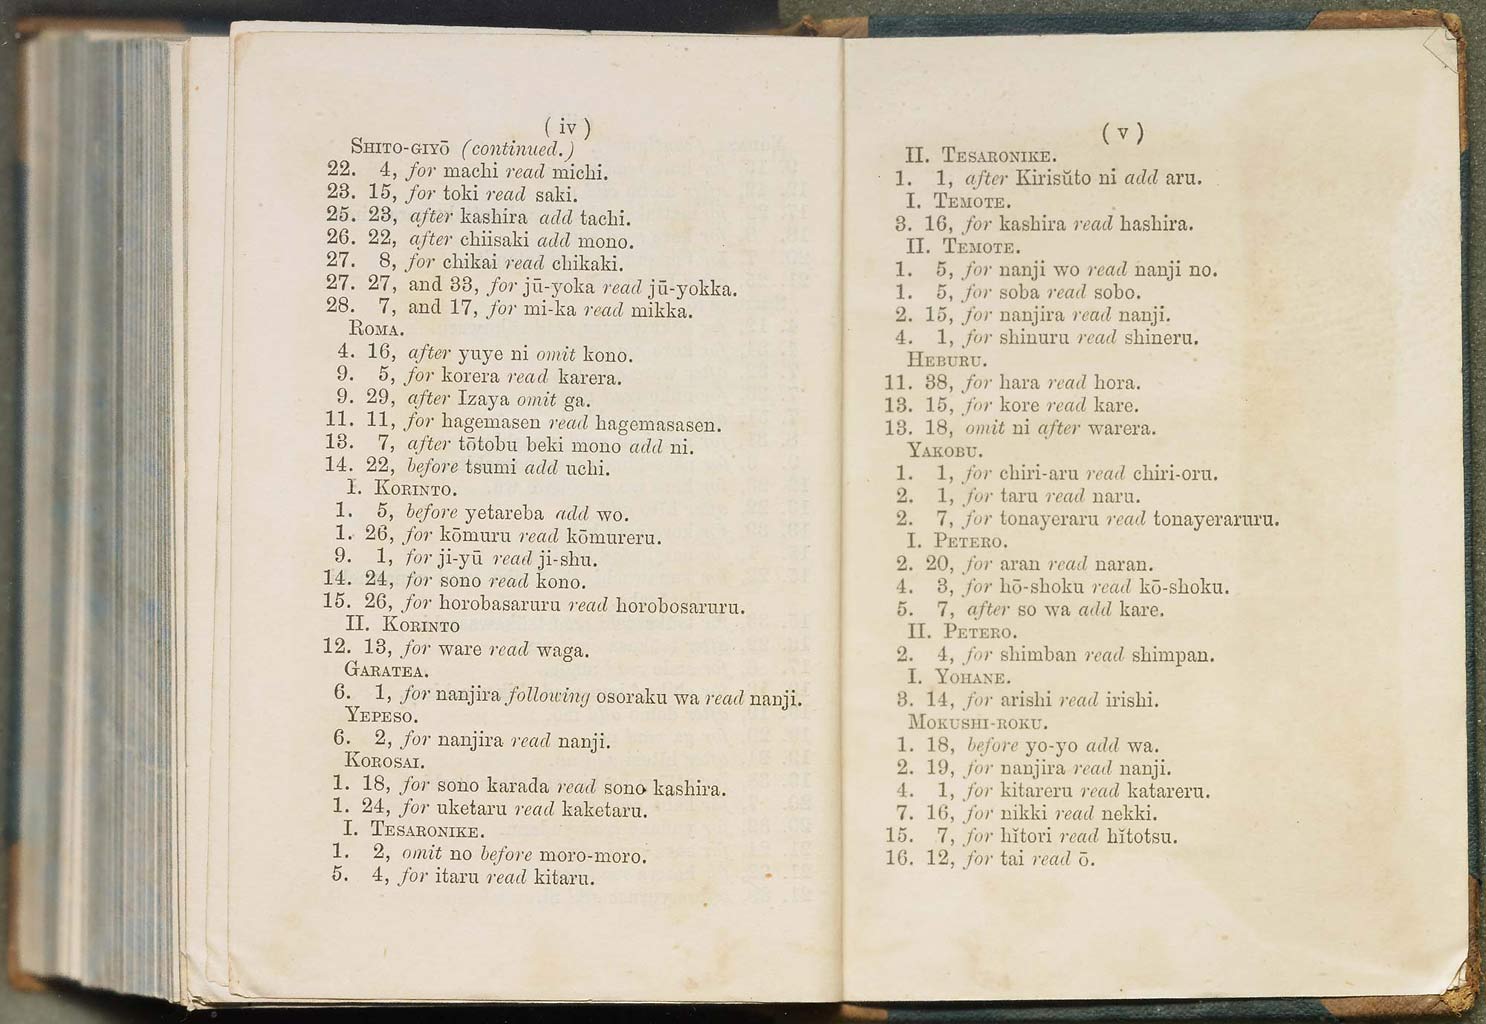 ( iv )
SHITO-GIYŌ (continued.)
22. 4, for machi read michi.
23. 15, for toki read saki.
25. 23, after kashira add tachi.
26. 22, after chiisaki add mono.
27. 8, for chikai read chikaki.
27. 27, and 33, for jū-yoka read jū-yokka.
28. 7, and 17, for mi-ka read mikka.
ROMA.
4. 16, after yuye ni omit kono.
9. 5, for korera read karera.
9. 29, after Izaya omit ga.
11. 11, for hagemasen read hagemasasen.
13. 7, after tōtobu beki mono add ni.
14. 22, before tsumi add uchi.
I. KORINTO.
1. 5, before yetareba add wo.
1. 26, for kōmuru read kōmureru.
9. 1, for ji-yū read ji-shu.
14. 24, for sono read kono.
15. 26, for horobasaruru read horobosaruru.
II. KORINTO
12. 13, for ware read waga.
GARATEA.
6. 1, for nanjira following osoraku wa read nanji.
YEPESO.
6. 2, for nanjira read nanji.
KOROSAI.
1. 18, for sono karada read sono kashira.
1. 24, for uketaru read kaketaru.
I. TESARONIKE.
1. 2, omit no before moro-moro.
5. 4, for itaru read kitaru.
( v )
II. TESARONIKE.
1. 1, after Kirisŭto ni add aru.
I. TEMOTE.
3. 16, for kashira read hashira.
II. TEMOTE.
1. 5, for nanji wo read nanji no.
1. 5, for soba read sobo.
2. 15, for nanjira read nanji.
4. 1, for shinuru read shineru.
HEBURU.
11. 38, for hara read hora.
13. 15, for kore read kare.
13. 18, omit ni after warera.
YAKOBU.
1. 1, for chiri-aru read chiri-oru.
2. 1, for taru read naru.
2. 7, for tonayeraru read tonayeraruru.
I. PETERO.
2. 20, for aran read naran.
4. 3, for hō-shoku read kō-shoku.
5. 7, after so wa add kare.
II. PETERO.
2. 4, for shimban read shimpan.
I. YOHANE.
3. 14, for arishi read irishi.
MOKUSHI-ROKU.
1. 18, before yo-yo add wa.
2. 19, for nanjira read nanji.
4. 1, for kitareru read katareru.
7. 16, for nikki read nekki.
15. 7, for hĭtori read hĭtotsu.
16. 12, for tai read ō.